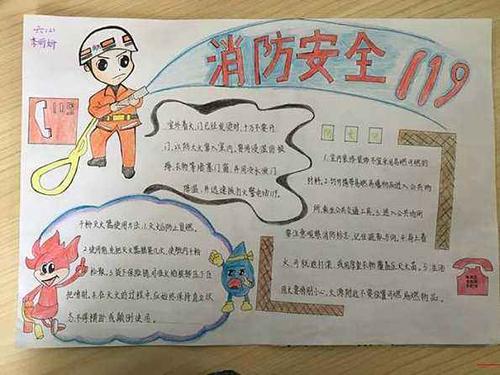 六(2)
李
消防安全 119
119
室外着火,门已经发烫时,千万不要开
门,以防大火窜入室内,要用浸湿的被
褥、衣物等堵塞门窗,并用泼水
降温,并迅速拨打火警电话119.
干粉灭火器使用方法:1.火火时防止复燃。
2.使用前先把灭火器颠几次,使桶内干粉
松散。3.拔下保险销,
把喷射。4.在灭火的过程中,应始终保持直立状
态,不得横卧或颠倒使用。
防火
1.室内装修装饰不宜采用易燃可燃的
材料。2.切勿携带易燃易爆物品进入公共场
所、乘坐公共交通工具。3.进入公共场所
要注意观察消防标志,记住疏散方向。4.身上着
火,可就地打滚,或用厚重衣物覆盖压灭火苗。5.生活
用火要特别小心,火源附近不要放置可燃易燃物品。